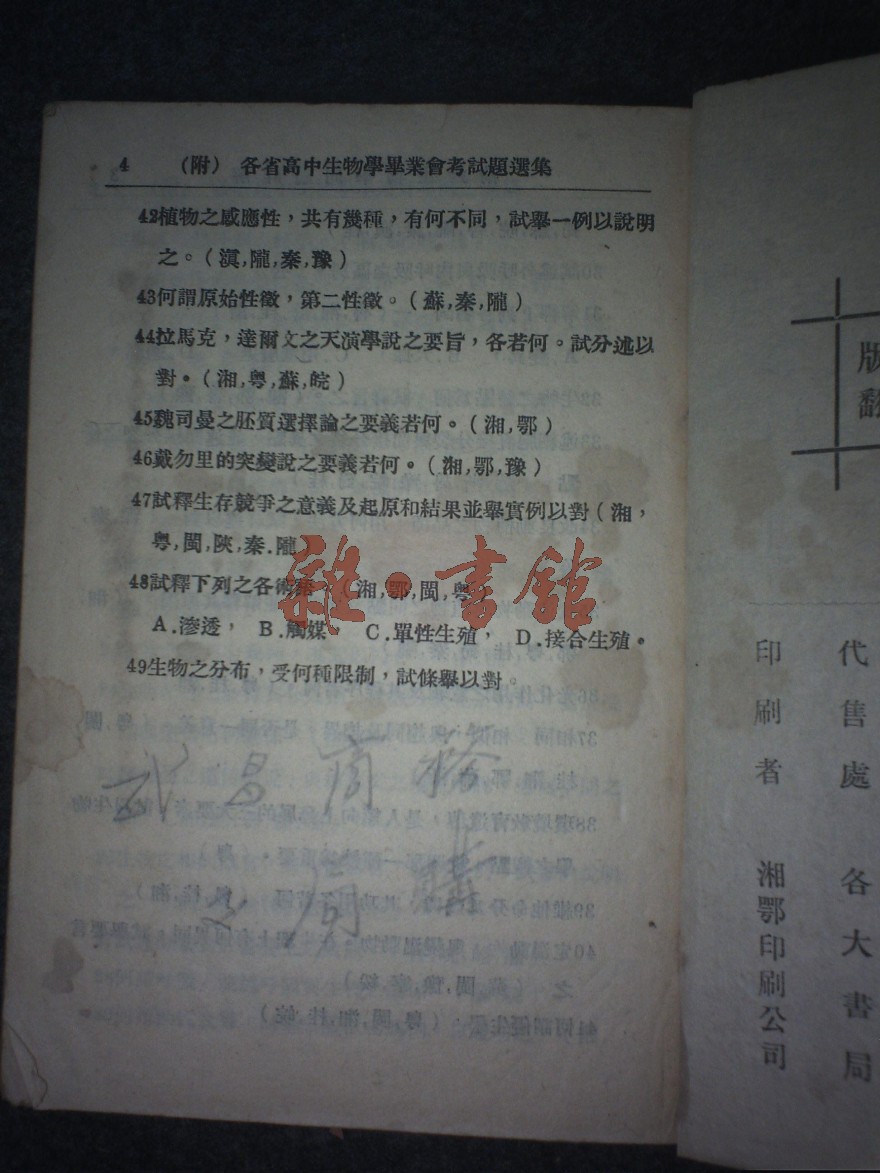 4 (附) 各省高中生物學畢業會考試題選集
42植物之感應性，共有幾種，有何不同，試舉一例以說明
之。(滇,隴,秦,豫)
43何謂原始性徵，第二性徵。(蘇,秦,隴)
44拉馬克，達爾文之天演學說之要旨，各若何。試分述以
對。(湘,粤,蘇,皖)
45魏司曼之胚質選擇論之要義若何。(湘,鄂)
46戴勿里的突變說之要義若何。(湘,鄂,豫)
47試釋生存競爭之意義及起原和結果並舉實例以對(湘，
粤,閩,陝,秦.隴
48試釋下列之各術語 (湘,鄂,閩,粤)
A.滲透， B.觸媒， C.單性生殖， D.接合生殖。
49生物之分布，受何種限制，試條舉以對。
雜·書館
武昌商
版
翻
代售處 各大書局
印刷者 湘鄂印刷公司